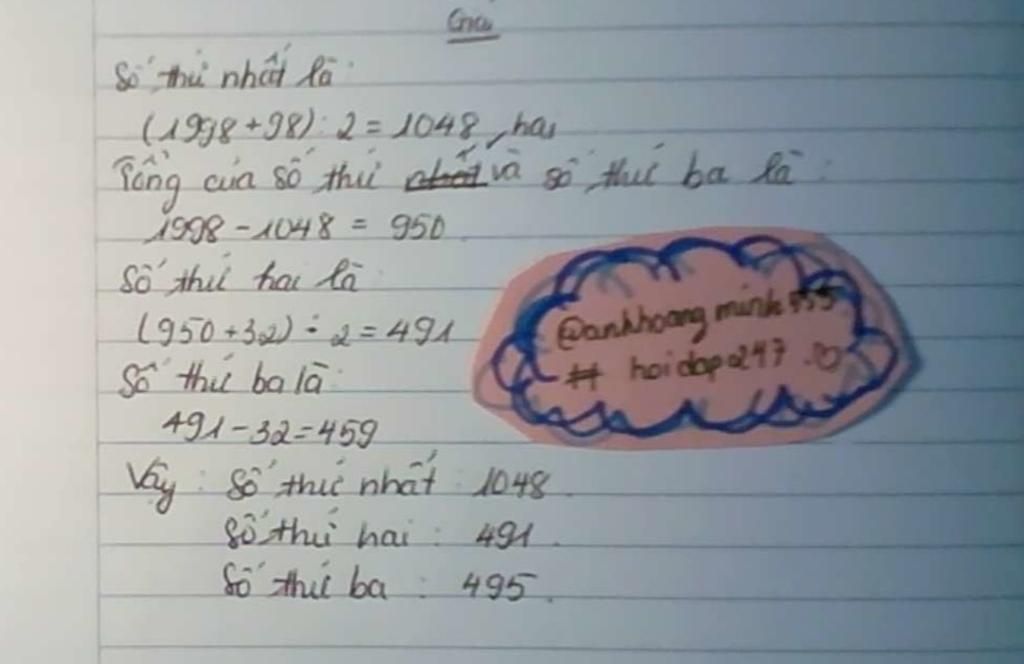 Giải
Số thứ nhất là:
(1998+98) : 2 = 1048
hai
Tổng của số thứ nhất và số thứ ba là :
1998 - 1048 = 950
Số thứ hai là
(950 +32) : 2 = 491
Số thứ ba là:
491 - 32 = 459
Vậy : Số thứ nhất : 1048.
Số thứ hai : 491.
Số thứ ba : 495.
@anhhoang minh 555
# hoidap247